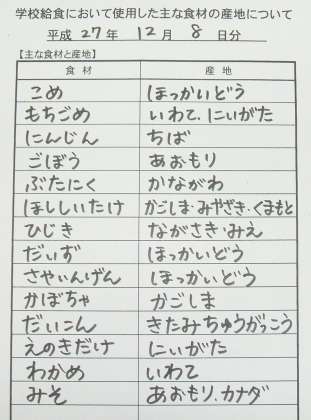 学校給食において使用した主な食材の産地について
平成 27 年 12 月 8 日分
【主な食材と産地】
食材 産地
こめ ほっかいどう
もちごめ いわて、にいがた
にんじん ちば
ごぼう あおもり
ぶたにく かながわ
ほししいたけ かごしま・みやざき・くまもと
ひじき ながさき・みえ
だいず ほっかいどう
さやいんげん ほっかいどう
かぼちゃ かごしま
だいこん きたみちゅうがっこう
えのきだけ にいがた
わかめ いわて
みそ あおもり、カナダ